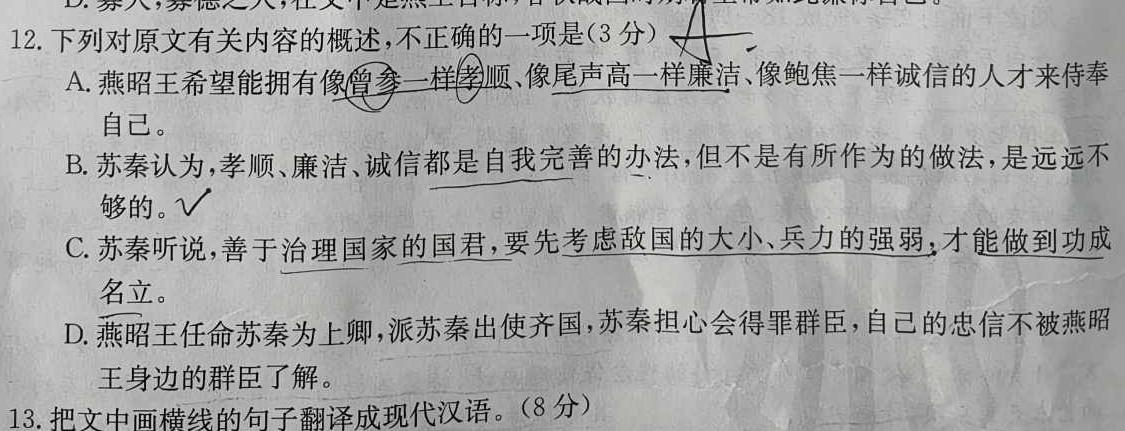 12. 下列对原文有关内容的概述,不正确的一项是(3 分) A
A. 燕昭王希望能拥有像曾参一样孝顺、像尾声高一样廉洁、像鲍焦一样诚信的人才来侍奉
自己。
B. 苏秦认为,孝顺、廉洁、诚信都是自我完善的办法,但不是有所作为的做法,是远远不
够的。✓
C. 苏秦听说,善于治理国家的国君,要先考虑敌国的大小、兵力的强弱,才能做到功成
名立。
D. 燕昭王任命苏秦为上卿,派苏秦出使齐国,苏秦担心会得罪群臣,自己的忠信不被燕昭
王身边的群臣了解。
13. 把文中画横线的句子翻译成现代汉语。(8 分)